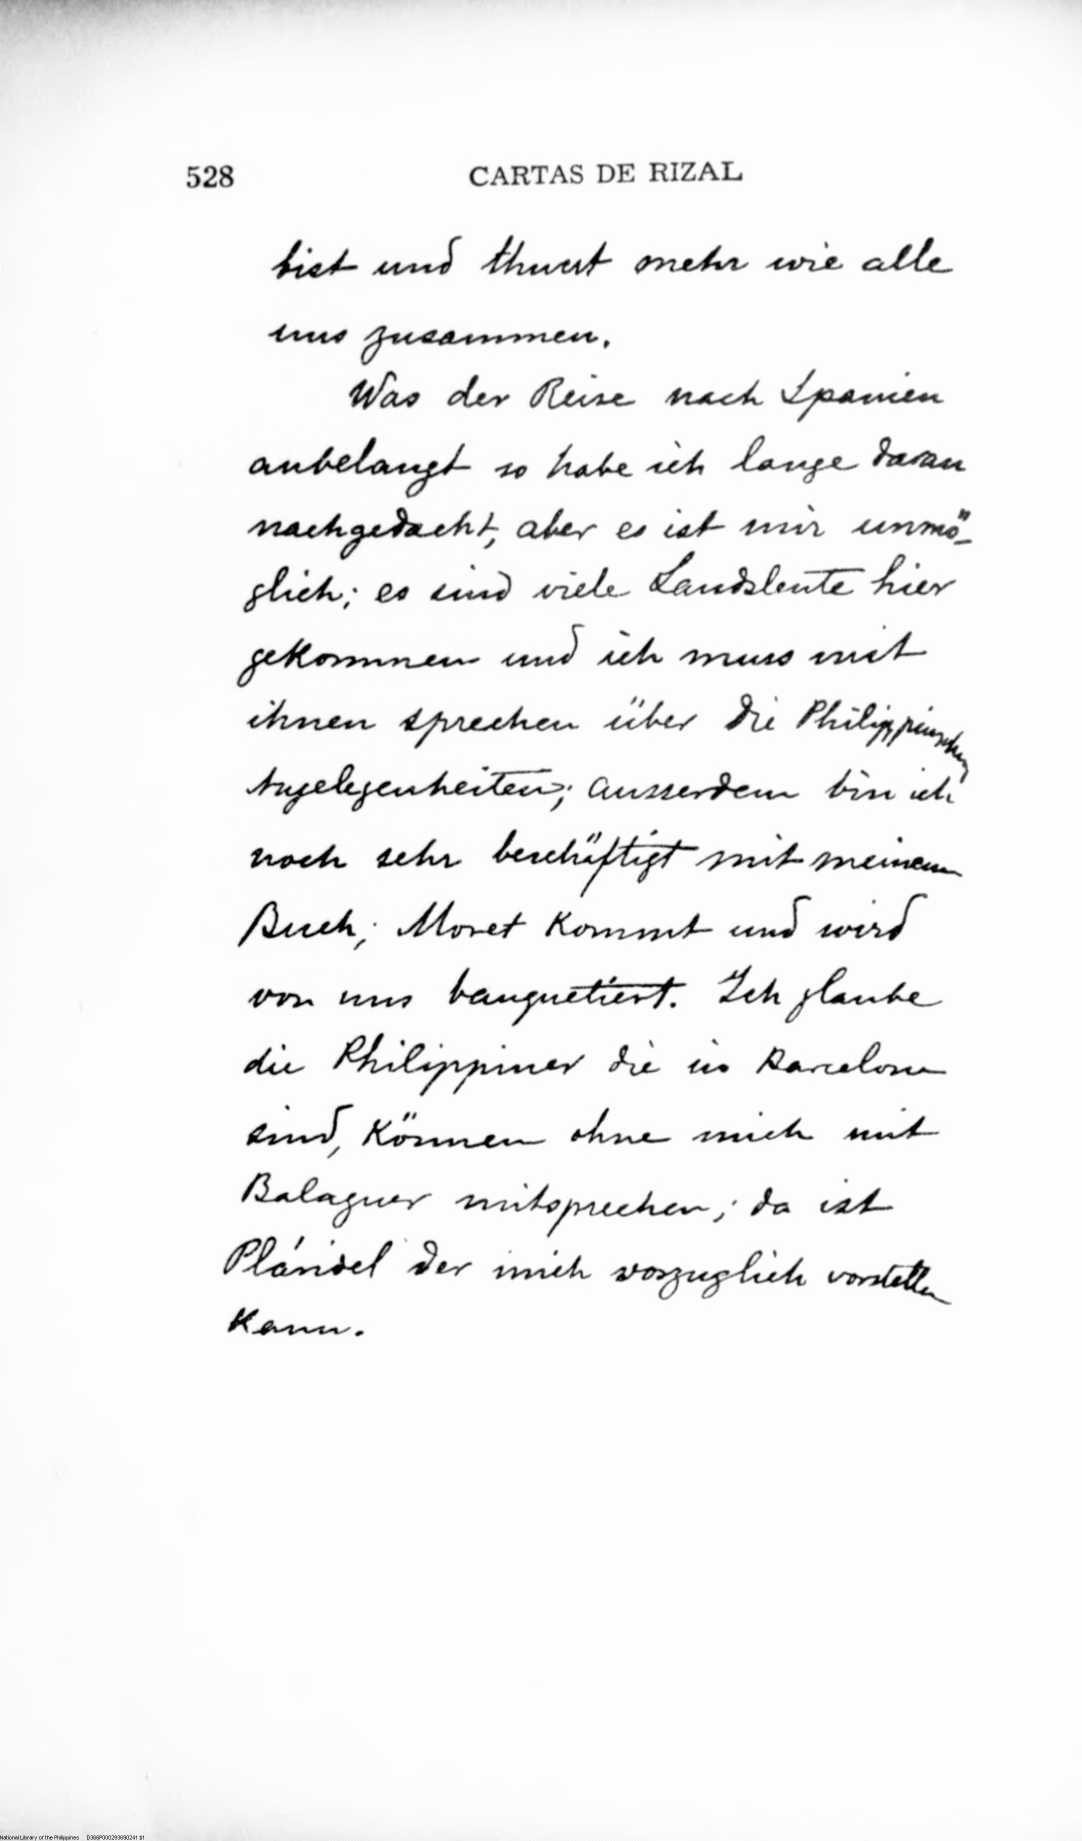 528 CARTAS DE RIZAL
bist und thuest mehr wie alle
uns zusammen.
Was der Reise nach Spanien
anbelangt so habe ich lange daran
nachgedacht, aber es ist mir unmö-
glich; es sind viele Landsleute hier
gekommen und ich muss mit
ihnen sprechen über die Philippinischen
Angelegenheiten; ausserdem bin ich
noch sehr beschäftigt mit meinem
Buch; Moret kommt und wird
von uns banquetiert. Ich glaube
die Philippiner die in Barcelona
sind, können ohne mich mit
Balaguer mitsprechen; da ist
Pláridel der mich vorzuglich vorstellen
kann.
National Library of the Philippines